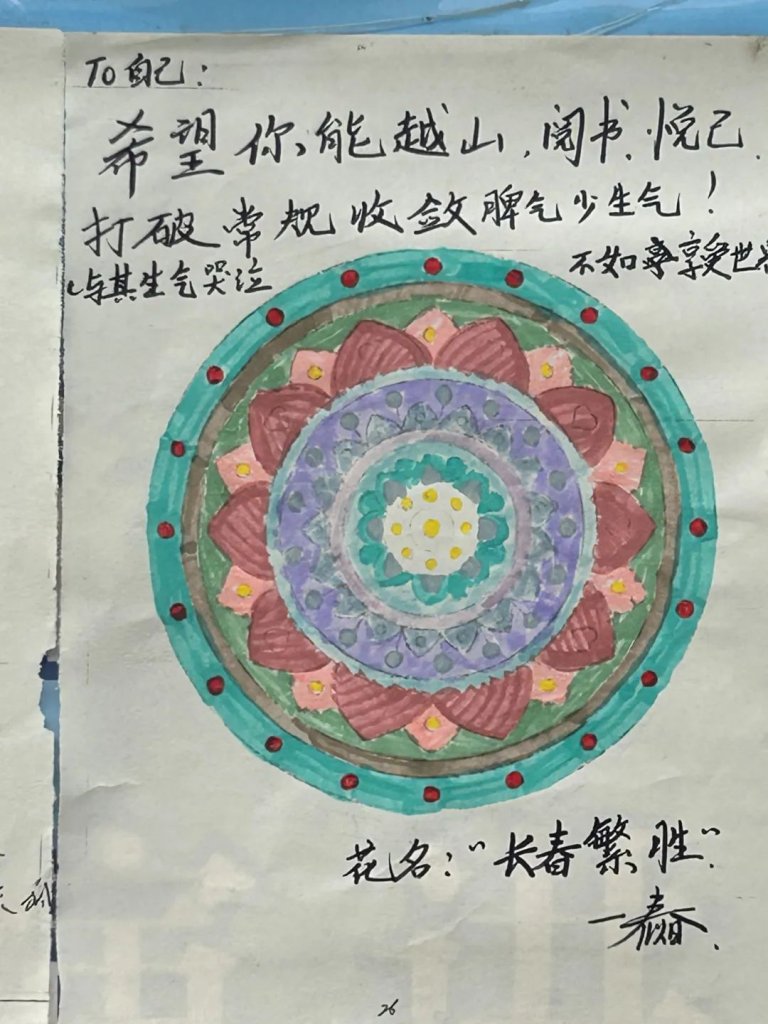 To自己:
希望你能越山,阅书,悦己.
打破常规收敛脾气少生气!
与其生气哭泣
不如享受世界
花名:"长春繁胜".
26